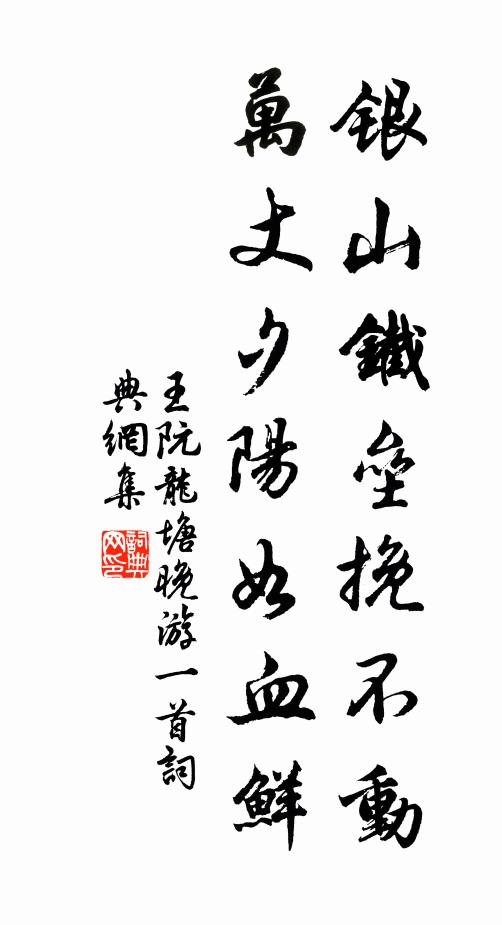 銀山鐵壘挽不動
萬丈夕陽如血鮮
王阮龍塘晚游一首詞
典網集
詞典
网印